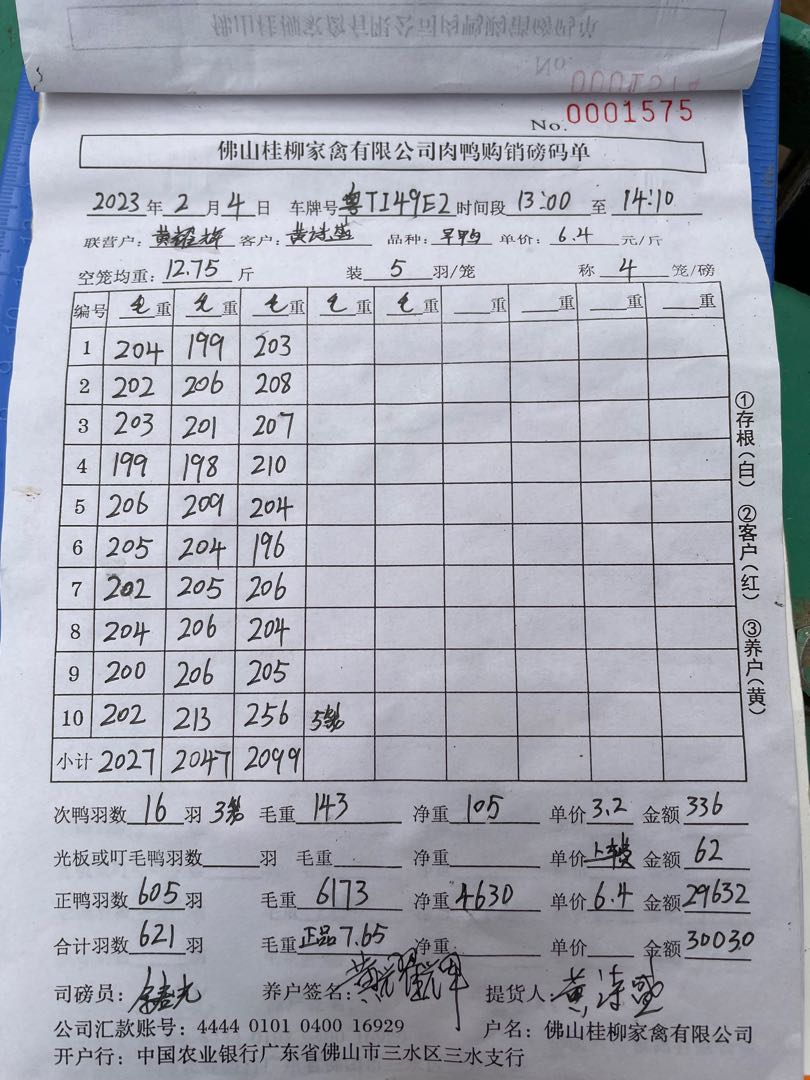 No. 0001575
佛山桂柳家禽有限公司肉鸭购销磅码单
2023年2月4日 车牌号 粤TI49E2 时间段 13:00 至 14:10
联营户:黄耀辉 客户:黄诗盛 品种:早鸭 单价:6.4 元/斤
空笼均重:12.75 斤 装 5 羽/笼 称 4 笼/磅
编号 毛重 毛重 毛重 毛重 毛重 重 重 重 重
1 204 199 203
2 202 206 208
3 203 201 207
4 199 198 210
5 206 209 204
6 205 204 196
7 202 205 206
8 204 206 204
9 200 206 205
10 202 213 256 5笼
小计 2027 2047 2099
①存根(白) ②客户(红) ③养户(黄)
次鸭羽数 16 羽 3笼 毛重 143 净重 105 单价 3.2 金额 336
光板或叮毛鸭羽数 羽 毛重 净重 单价 上车费 金额 62
正鸭羽数 605 羽 毛重 6173 净重 4630 单价 6.4 金额 29632
合计羽数 621 羽 毛重 正品7.65 净重 单价 金额 30030
司磅员: 养户签名:黄耀辉 提货人:黄诗盛
公司汇款账号:4444 0101 0400 16929 户名:佛山桂柳家禽有限公司
开户行:中国农业银行广东省佛山市三水区三水支行